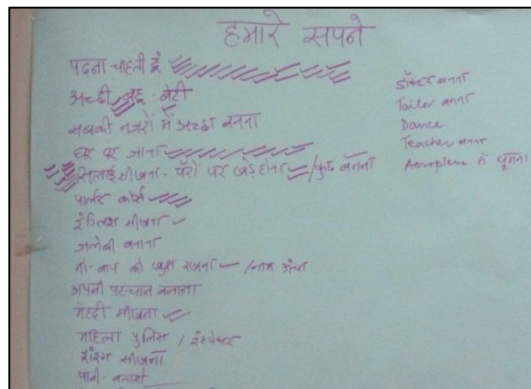 हमारे सपने
पढना चाहती हूँ
अच्छी बहू - बेटी
सबकी नजरों में अच्छा बनना
घर पर जाना
सिलाई सीखना - पैरों पर खड़े होना / कुछ बनना
पार्लर कोर्स
इंग्लिश सीखना
जलेबी बनाना
माँ-बाप को खुश रखना / नाम ऊँचा
अपनी पहचान बनाना
मेहंदी सीखना
महिला पुलिस / इंस्पेक्टर
सीखना
डॉक्टर बनना
Tailor बनना
Dance
Teacher बनना
Aeroplane में घूमना